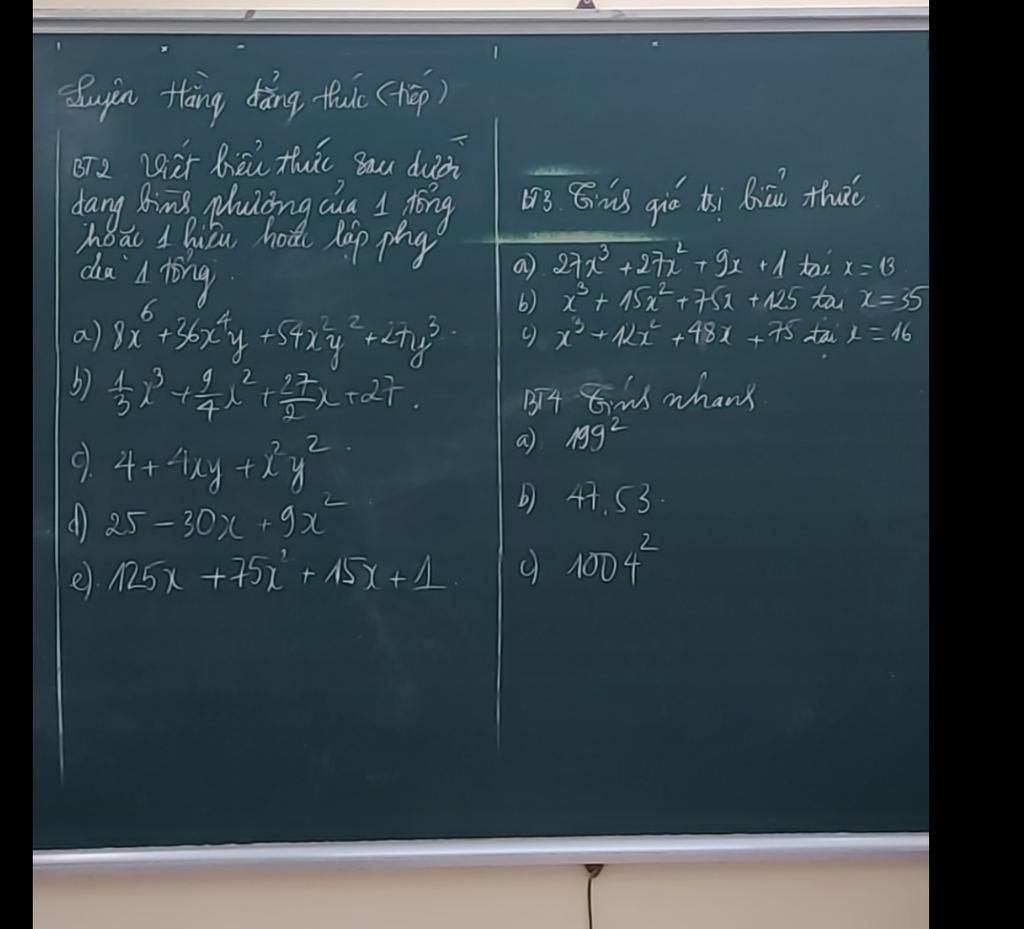 Luyện Hằng đẳng thức (tiếp)
BT2 Viết biểu thức sau dưới
dạng bình phương của 1 tổng
hoặc 1 hiệu hoặc lập phg
của 1 tổng.
a) 8x⁶ + 36x⁴y + 54x²y² + 27y³.
b) 1/3 x³ + 9/4 x² + 27/2 x + 27.
c). 4 + 4xy + x²y².
d) 25 - 30x + 9x²
e). 125x + 75x² + 15x + 1.
BT3. Tính giá trị biểu thức
a) 27x³ + 27x² + 9x + 1 tại x = 13
b) x³ + 15x² + 75x + 125 tại x = 35
c) x³ + 12x² + 48x + 75 tại x = 16
BT4 Tính nhanh
a) 199²
b) 47.53.
c) 1004²